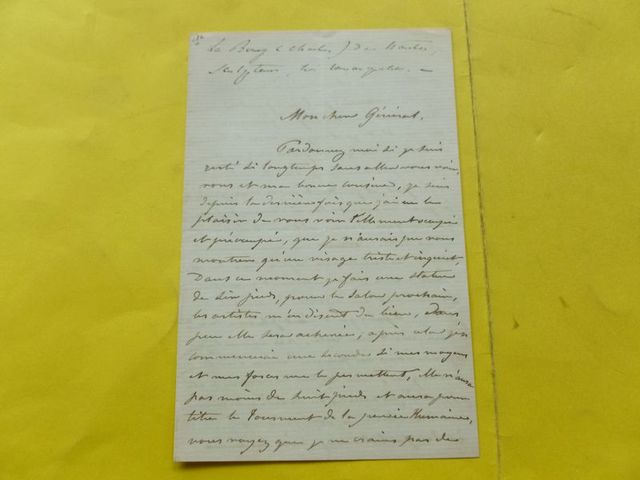 Le Bourg
Sculpteur, très remarquable. —
Mon cher Général.
Pardonnez moi si je suis
resté si longtemps sans aller vous voir,
vous et ma bonne cousine, je suis
depuis la dernière fois que j'ai eu le
plaisir de vous voir tellement occupé
et préoccupé, que je n'aurais pu vous
montrer qu'un visage triste et inquiet,
Dans ce moment je fais une statue
de dix pieds, pour le Salon prochain,
les artistes m'en disent du bien, dans
peu elle sera achevée, après cela j'en
commencerai une seconde si mes moyens
et mes forces me le permettent, elle n'aura
pas moins de huit pieds et aura pour
titre le Tourment de la pensée Humaine,
vous voyez que je ne crains pas de